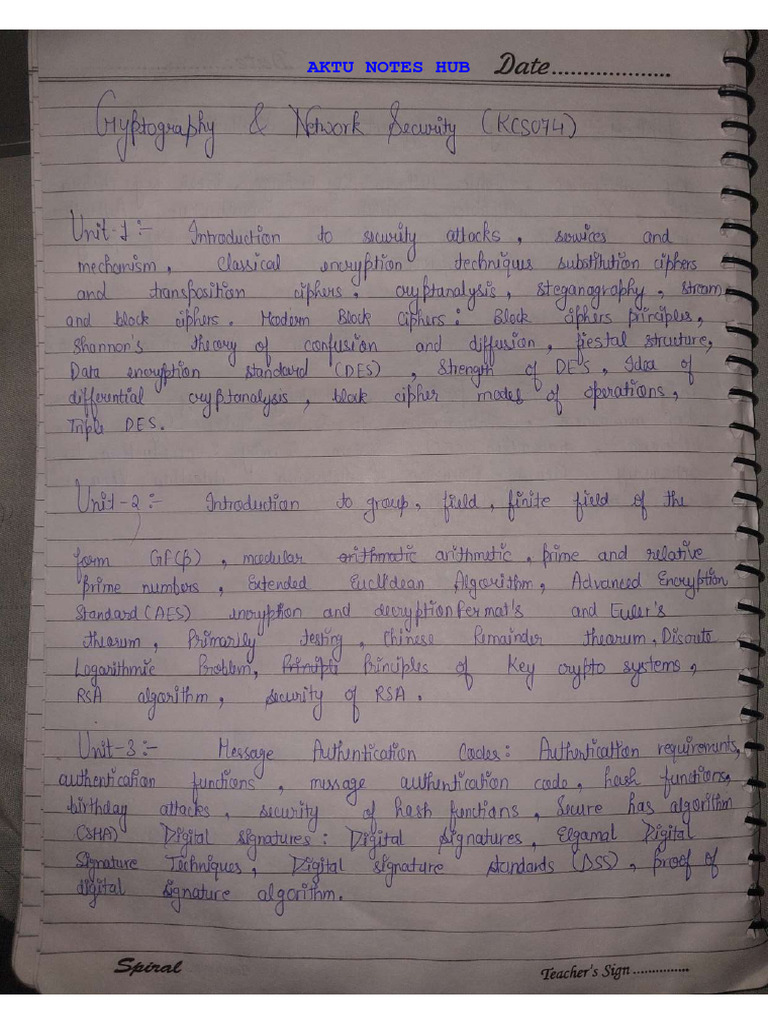 AKTU NOTES HUB Date..................
Cryptography & Network Security (KCS074)
Unit-1:- Introduction to security attacks, services and
mechanism, Classical encryption techniques substitution ciphers
and transposition ciphers. cryptanalysis, steganography, stream
and block ciphers. Modern Block Ciphers: Block ciphers principles,
Shannon's theory of confusion and diffusion, fiestal structure,
Data encryption standard (DES), Strength of DE's, Idea of
differential cryptanalysis, block cipher modes of operations,
Triple DES.
Unit-2:- Introduction to group, field, finite field of the
form GF(p), modular arithmatic arithmetic, prime and relative
prime numbers, Extended Euclidean Algorithm, Advanced Encryption
Standard (AES) encryption and decryption Fermat's and Euler's
thearum, Primarily testing, Chinese Remainder thearum, Discrete
Logarithmic Problem, Principts Principles of key crypto systems,
RSA algorithm, security of RSA.
Unit-3:- Message Authentication Codes: Authentication requirements,
authentication functions, message authentication code, hash functions,
birthday attacks, security of hash functions, Secure has algorithm
(SHA) Digital signatures: Digital Signatures, Elgamal Digital
Signature Techniques, Digital signature standards (DSS), proof of
digital signature algorithm.
Spiral Teacher's Sign ...............